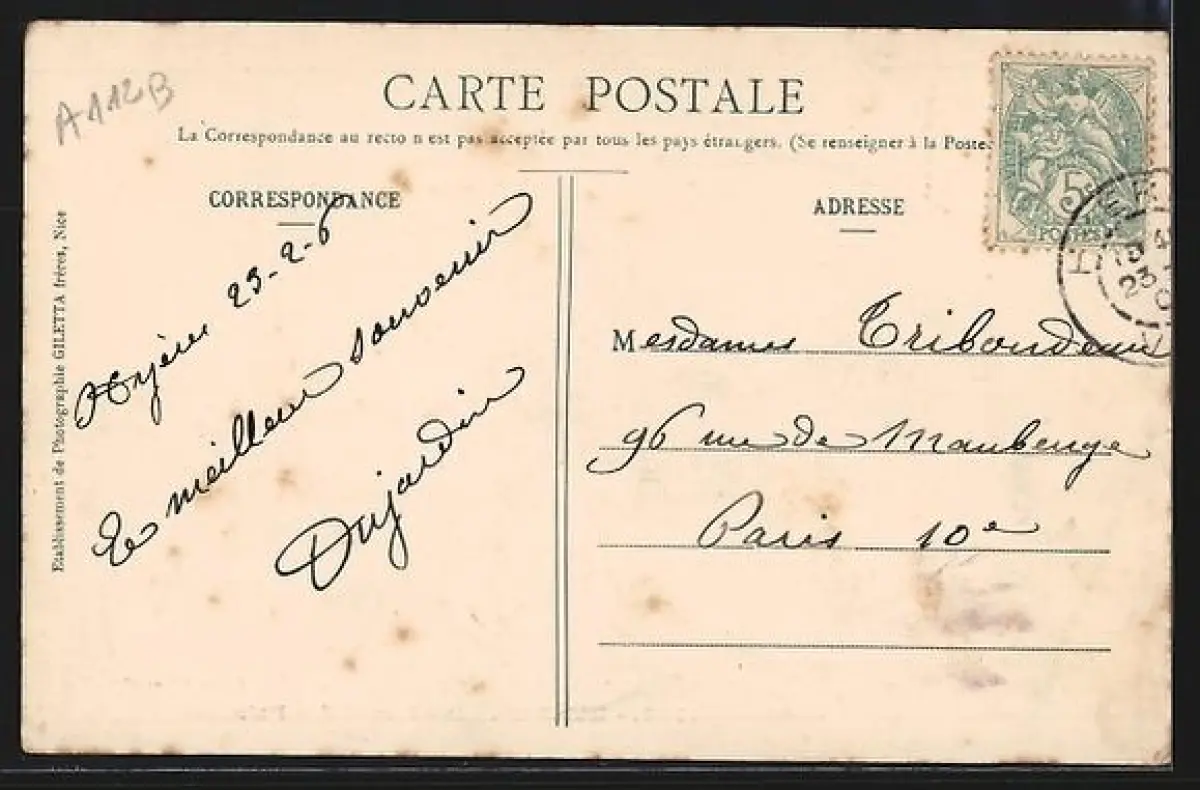 A112B
CARTE POSTALE
La Correspondance au recto n'est pas acceptée par tous les pays étrangers. (Se renseigner à la Poste
CORRESPONDANCE
ADRESSE
Etablissement de Photographie GILETTA frères, Nice
Hyères 23-2-6
Le meilleur souvenir
Dujardin
5
POSTES
23
Mesdames Triboudeau
96 rue de Maubeuge
Paris 10e